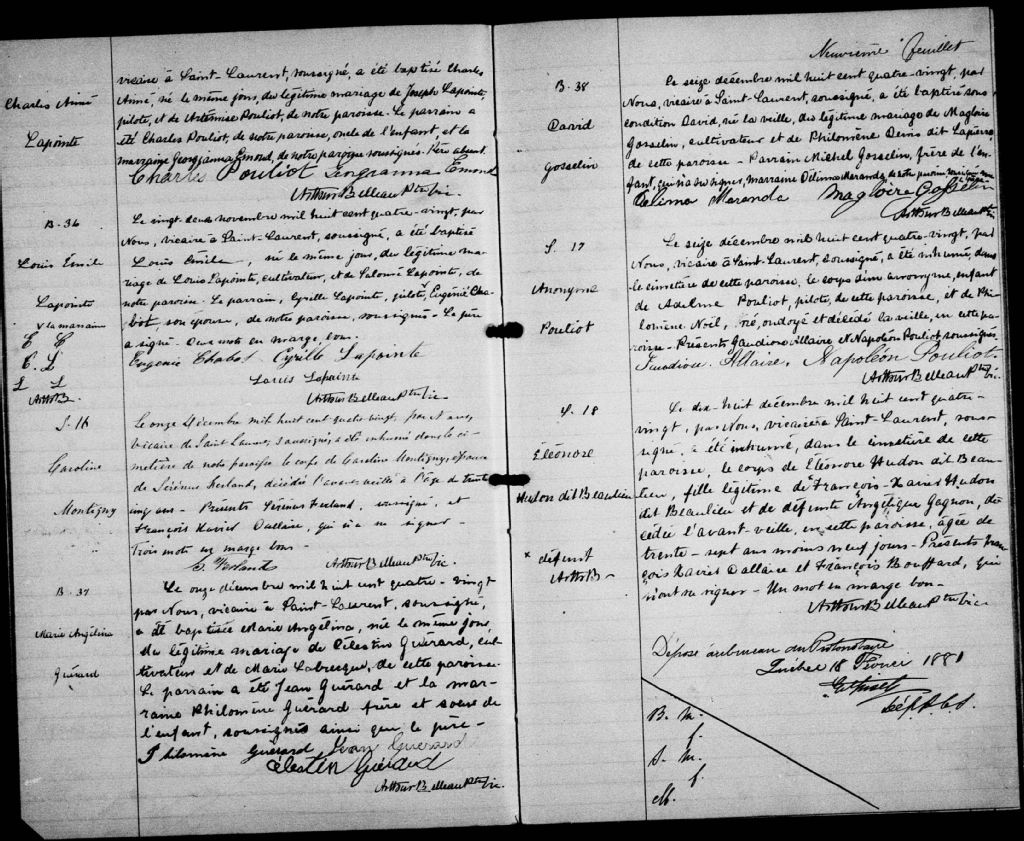 Charles Aimé
Lapointe
vicaire à Saint-Laurent, soussigné, a été baptisé Charles
Aimé, né le même jour, du légitime mariage de Joseph Lapointe,
pilote, et de Artémise Pouliot, de notre paroisse. Le parrain a
été Charles Pouliot, de notre paroisse, oncle de l'enfant, et la
marraine Georgianna Emond, de notre paroisse soussignés. Père absent.
Charles Pouliot Georgianna Emond
Arthur Belleau Ptre Vic.
B-36
Louis Émile
Lapointe
x la marraine
E C
C. L
L L
Arth B-
Le vingt-deux novembre mil huit cent quatre-vingt, par
Nous, vicaire à Saint-Laurent, soussigné, a été baptisé
Louis Émile, né le même jour, du légitime ma-
riage de Louis Lapointe, cultivateur, et de Salomé Lapointe, de
notre paroisse. Le parrain, Cyrille Lapointe, pilote x Eugénie Cha-
bot, son épouse, de notre paroisse, soussignés - Le père
a signé. Deux mots en marge, bons -
Eugenie Chabot Cyrille Lapointe
Louis Lapointe
Arthur Belleau Ptre Vic.
S-16
Caroline
Montigny
Le onze décembre mil huit cent quatre-vingt, par Nous,
vicaire de Saint-Laurent, soussigné, a été inhumé dans le ci-
metière de notre paroisse le corps de Caroline Montigny, épouse
de Sirénus Ferland, décédée l'avant-veille à l'âge de trente
cinq ans - Présents Sirénus Ferland, soussigné, et
François Xavier Dallaire, qui n'a su signer -
Trois mots en marge bons -
S. Ferland Arthur Belleau Ptre Vic.
B-37
Marie Angélina
Guérard
Le onze décembre mil huit cent quatre-vingt
par Nous, vicaire à Saint-Laurent, soussigné,
a été baptisée Marie Angélina, née le même jour
du légitime mariage de Célestin Guérard, cul-
tivateur et de Marie Labrecque, de cette paroisse.
Le parrain a été Jean Guérard et la mar-
raine Philomène Guérard frère et soeur de
l'enfant, soussignés ainsi que le père -
Philomène Guérard Jean Guérard
Célestin Guérard
Arthur Belleau Ptre Vic.
Neuvième feuillet
B-38
David
Gosselin
Le seize décembre mil huit cent quatre-vingt, par
Nous, vicaire à Saint-Laurent, soussigné, a été baptisé sous
condition David, né la veille, du légitime mariage de Magloire
Gosselin, cultivateur et de Philomène Denis dit Lapierre
de cette paroisse - Parrain Michel Gosselin, frère de l'en-
fant, qui n'a su signer, marraine Délima Maranda, de cette paroisse
Delima Maranda Magloire Gosselin
Arthur Belleau Ptre Vic
S. 17
Anonyme
Pouliot
Le seize décembre mil huit cent quatre-vingt, par
Nous, vicaire à Saint-Laurent, soussigné, a été inhumé, dans
le cimetière de cette paroisse, le corps d'un anonyme, enfant
de Adelme Pouliot, pilote, de cette paroisse, et de Phi-
lomène Noël, né, ondoyé et décédé la veille, en cette pa-
roisse - Présents Gaudiose Allaire et Napoléon Pouliot soussignés.
Gaudiose Allaire, Napoléon Pouliot
Arthur Belleau Ptre Vic.
S. 18
Éléonore
Hudon dit Beaulieu
x défunt
Arth B-
Le dix-huit décembre mil huit cent quatre-
vingt, par Nous, vicaire à Saint-Laurent, sous-
signé, a été inhumé, dans le cimetière de cette
paroisse, le corps de Éléonore Hudon dit Beau-
lieu, fille légitime de x François-Xavier Hudon
dit Beaulieu et de défunte Angélique Gagnon, dé-
cédée l'avant-veille, en cette paroisse, âgée de
trente-sept ans moins neuf jours - Présents Fran-
çois Xavier Dallaire et François Bouffard, qui
n'ont su signer - Un mot en marge bon -
Arthur Belleau Ptre Vic
Déposé au bureau du Protonotaire
Québec 18 Février 1881
B. M.
f.
S. M.
f.
M.